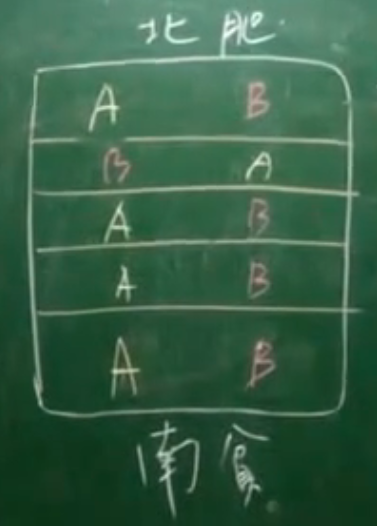 北肥
A B
B A
A B
A B
A B
南貧